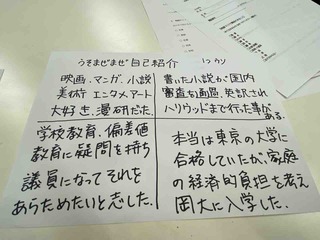 うそまぜまぜ自己紹介 1つウソ
映画、マンガ、小説
美術 エンタメアート
大好き、漫研だった。
書いた小説が国内
審査を通過、英訳され
ハリウッドまで行った事がある。
学校教育、偏差値
教育に疑問を持ち
議員になってそれを
あらためたいと志した。
本当は東京の大学に
合格していたが、家庭
の経済的負担を考え
岡大に入学した。